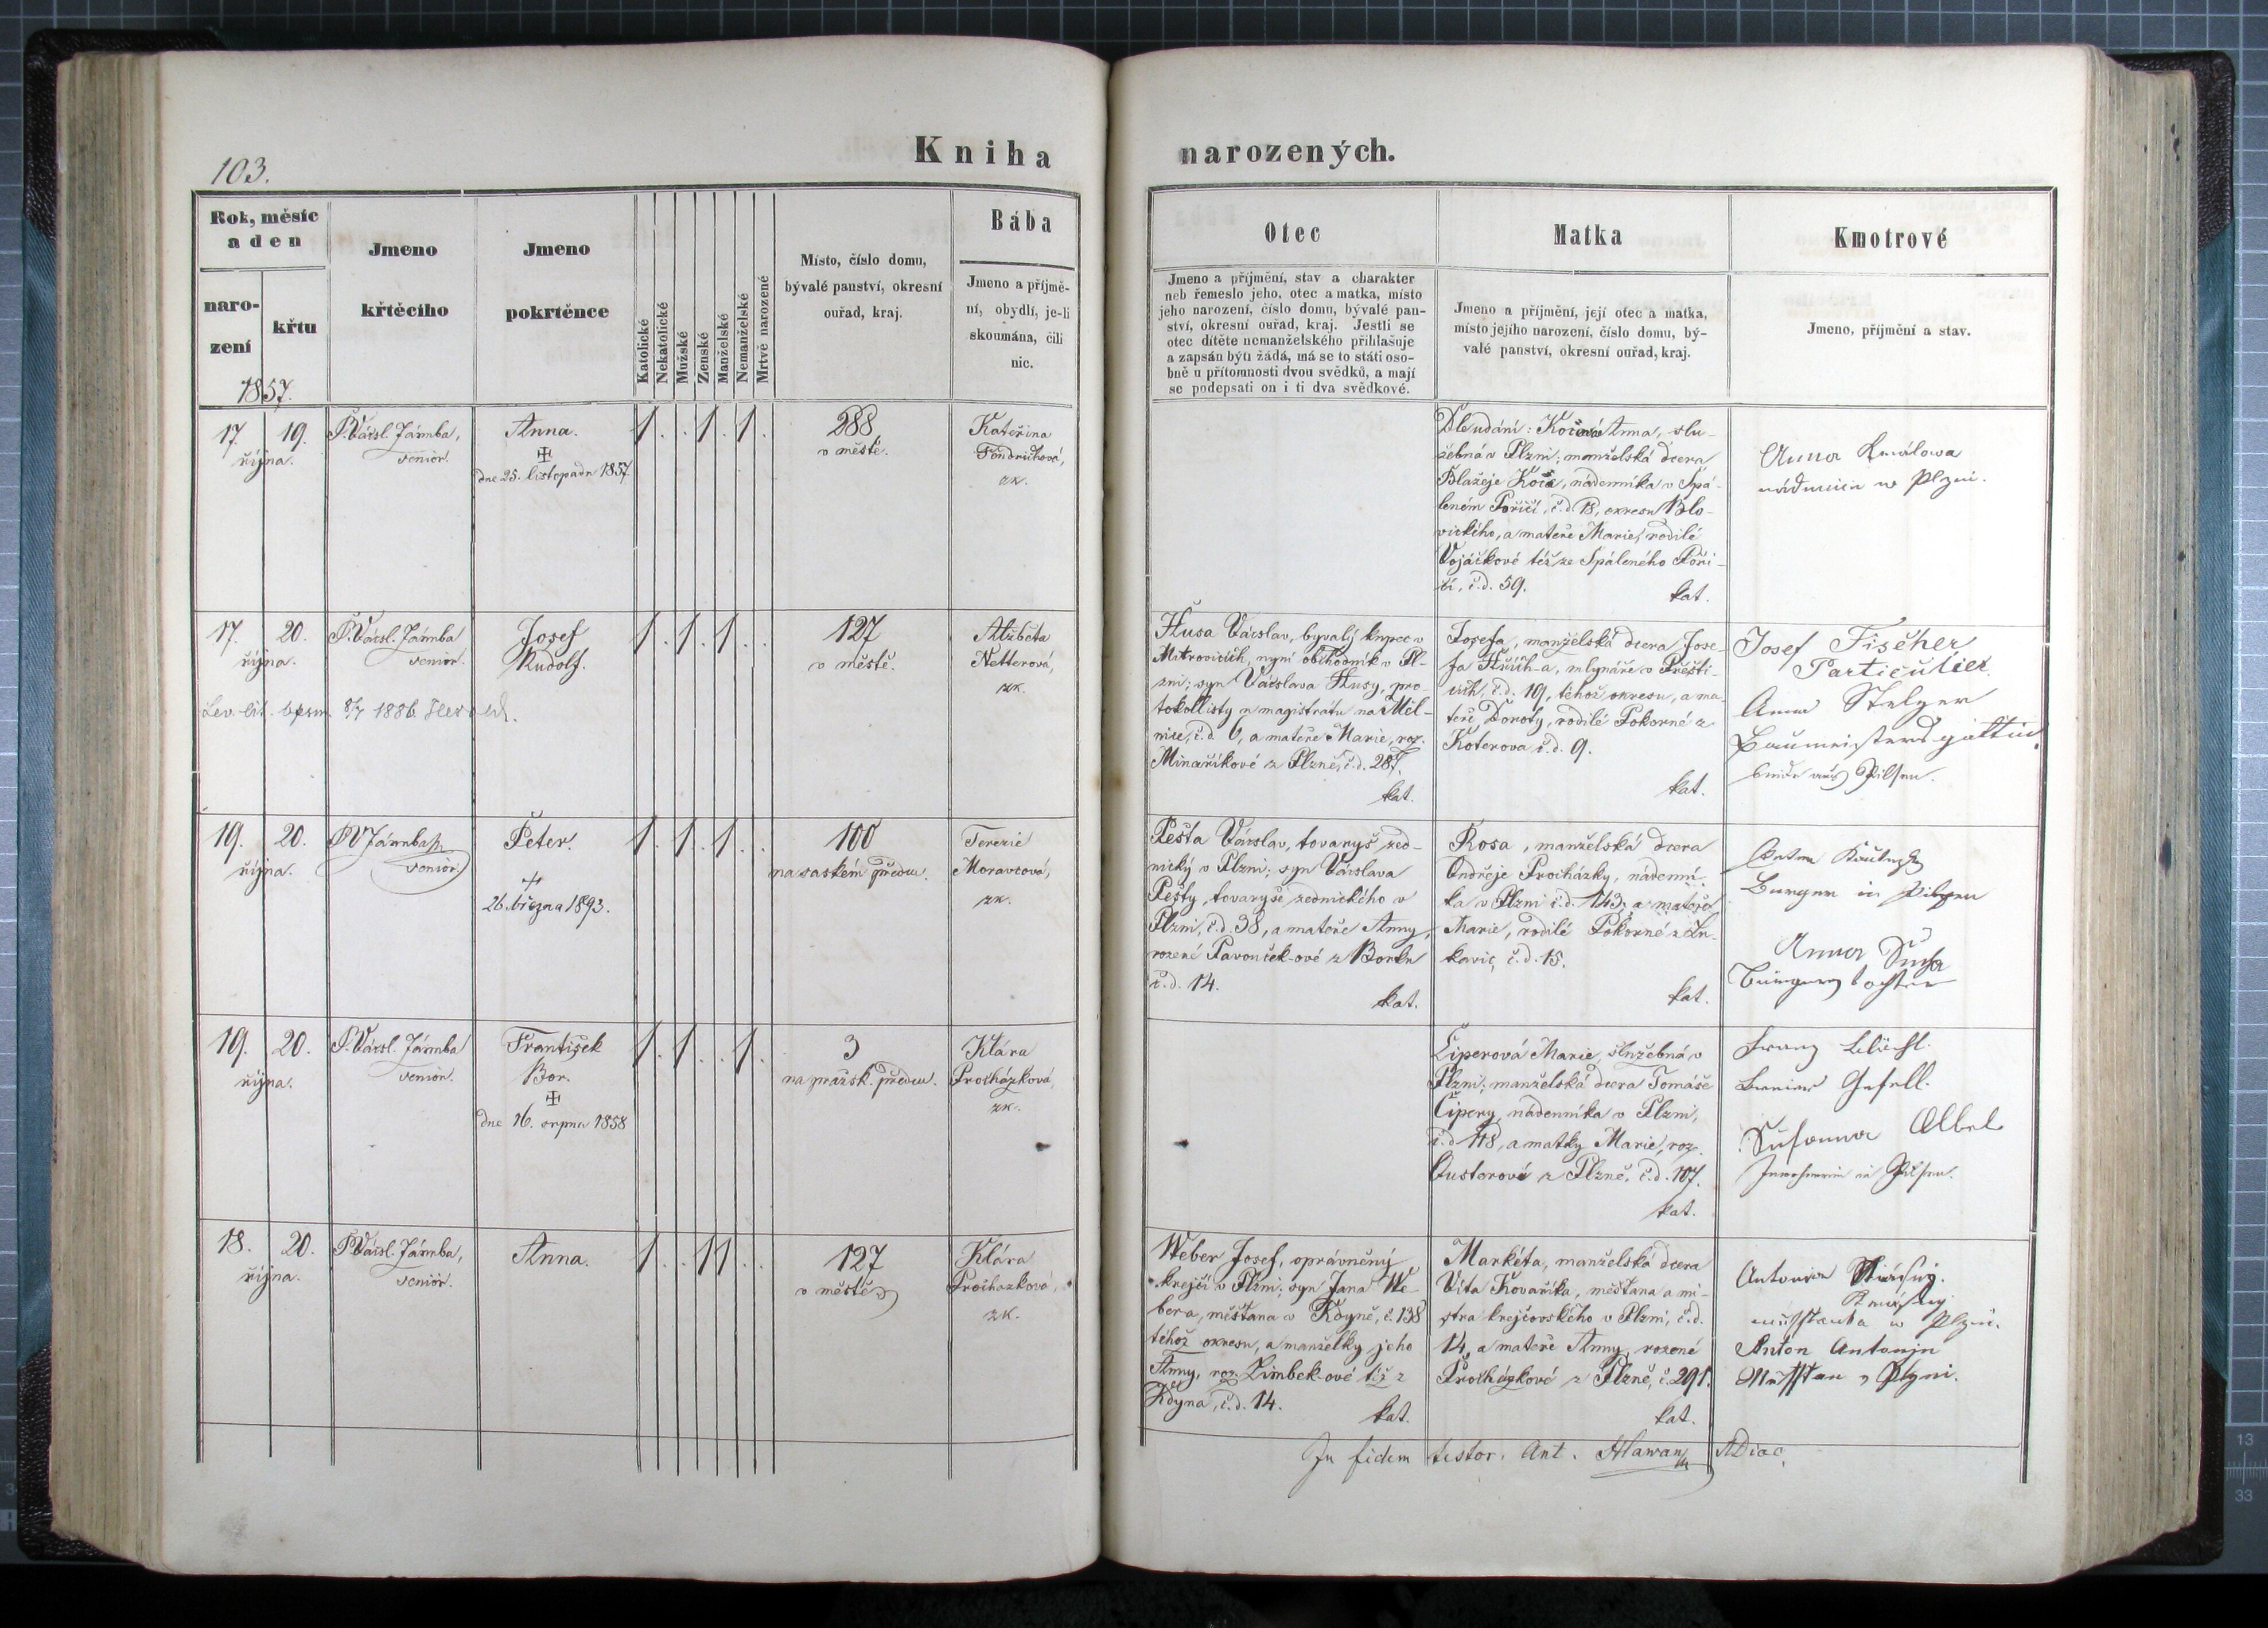 103.
Kniha
narozených.
Rok, měsíc
a den
naro-
zení
křtu
1857.
Jmeno
křtěcího
Jmeno
pokrtěnce
Katolické
Nekatolické
Mužské
Zenské
Manželské
Nemanželské
Mrtvě narozené
Místo, číslo domu,
bývalé panství, okresní
ouřad, kraj.
Bába
Jmeno a příjmě-
ní, obydlí, je-li
skoumána, čili
nic.
Otec
Jmeno a příjmění, stav a charakter
neb řemeslo jeho, otec a matka, místo
jeho narození, číslo domu, bývalé pan-
ství, okresní ouřad, kraj. Jestli se
otec dítěte nemanželského přihlašuje
a zapsán býti žádá, má se to státi oso-
bně u přítomnosti dvou svědků, a mají
se podepsati on i ti dva svědkové.
Matka
Jmeno a příjmění, její otec a matka,
místo jejího narození, číslo domu, bý-
valé panství, okresní ouřad, kraj.
Kmotrové
Jmeno, příjmění a stav.
17. 19.
října.
P. Vácsl. Jámba,
senior.
Anna.
dne 25. listopadu 1857
1 . . 1 . 1 .
288
v městě.
Kateřina
zk.
Dle udání: Anna, slu-
žebná v Plzni; manželská dcera
Blažeje Koře, nádenníka v Spá-
leném Poříčí, č.d. 18, okresu Blo-
vického, a mateře Marie, rodilé
Vojáčkové též ze Spáleného Poří-
čí, č.d. 59.
kat.
Anna
w Plzni.
17. 20.
října.
P. Vácsl. Jámba
senior.
Josef
Rudolf.
1 . 1 . 1 . .
127
v městě.
Alžběta
Netterová,
zk.
8/7 1886
Husa Vácslav, byvalý kupec v
Mitrovicích, nyní obchodník v Pl-
zni; syn Vácslava Husy, pro-
tokollisty u magistrátu na Měl-
níce, č.d. 6, a mateře Marie, roz.
Minaříkové z Plzně, č.d. 287.
kat.
Josefa, manželská dcera Jose-
fa mlynáře v Přešti-
cích, č.d. 19, téhož okresu, a ma-
teře Doroty, rodilé Pokorné z
Koterova č.d. 9.
kat.
Josef Fischer
Particulier
Anna Stelzer
Baumeistersgattin
beide aus Pilsen.
19. 20.
října.
P V Jámba
senior.
Peter.
26. března 1893.
1 . 1 . 1 . .
100
na saském předm.
Terezie
Moravcová,
zk.
Pešta Vácslav, tovaryš zed-
nický v Plzni; syn Vácslava
Pešty, tovaryše zednického v
Plzni, č.d. 38, a mateře Anny,
rozené Pavouček-ové z Borku
č.d. 14.
kat.
Rosa, manželská dcera
Ondřeje Procházky, nádenní-
ka v Plzni č.d. 143, a mateře
Marie, rodilé Pokorné z Lu-
kavic, č.d. 15.
kat.
Burger in Pilsen
Anna
Bürgerstochter
19. 20.
října.
P. Vácsl. Jámba
senior.
František
Bor.
dne 16. srpna 1858
1 . 1 . . 1 .
3
na pražsk. předm.
Klára
Procházková,
zk.
Čiperová Marie, služebná v
Plzni; manželská dcera Tomáše
Čipery, nádenníka v Plzni,
č.d. 118, a matky Marie, roz.
z Plzně, č.d. 107.
kat.
Franz
Gesell.
Susanna Albel
Inwohnerin in Pilsen.
18. 20.
října.
P. Vácsl. Jámba,
senior.
Anna.
1 . . 1 1 . .
127
v městě
Klára
Procházková,
zk.
Weber Josef, oprávněný
krejčí v Plzni; syn Jana We-
bera, měšťana v Kdyně, č. 138
téhož okresu, a manželky jeho
Anny, roz. Zimbek-ové též z
Kdyna, č.d. 14.
kat.
Markéta, manželská dcera
Víta Kovaříka, měšťana a mi-
stra krejčovského v Plzni, č.d.
14, a mateře Anny, rozené
Procházkové z Plzně, č. 291.
kat.
Antonia
w Plzni.
Anton Antonin
v Plzni.
In fidem testor. Ant. Hlawan ADiac.
13
33